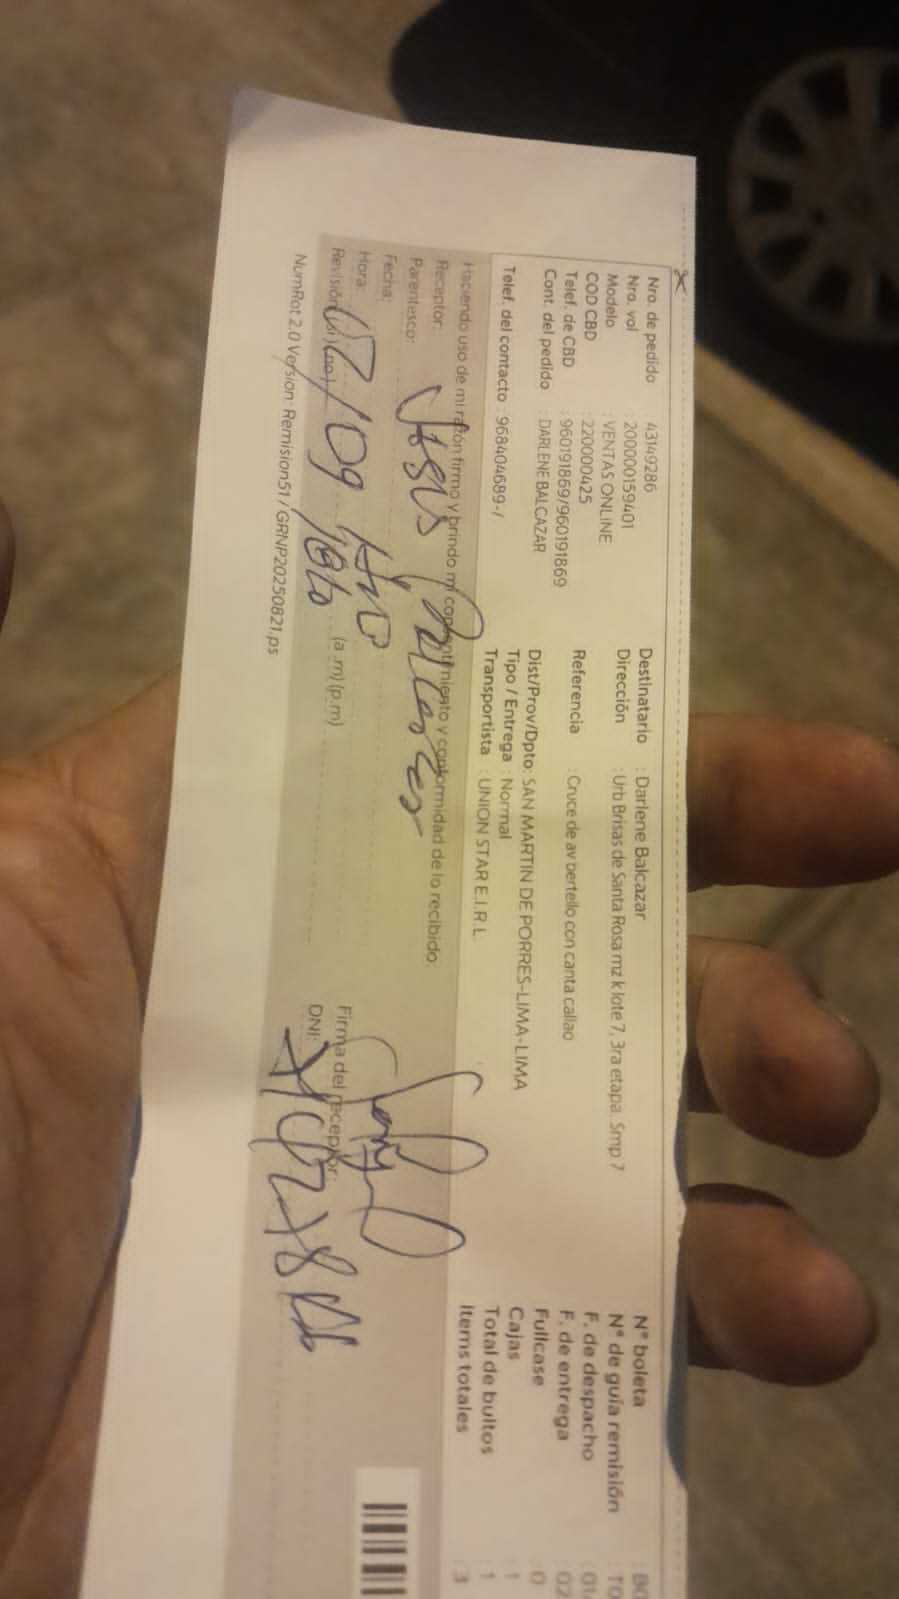 Nro. de pedido : 43149286
Nro. vol : 200000159401
Modelo : VENTAS ONLINE
COD CBD : 220000425
Telef. de CBD : 960191869/960191869
Cont. del pedido : DARLENE BALCAZAR
Telef. del contacto : 968404689-/
Destinatario : Darlene Balcazar
Dirección : Urb Brisas de Santa Rosa mz k lote 7, 3ra etapa. Smp 7
Referencia : Cruce de av bertello con canta callao
Dist/Prov/Dpto: SAN MARTIN DE PORRES-LIMA-LIMA
Tipo / Entrega : Normal
Transportista : UNION STAR E.I.R.L
N° boleta : BO
N° de guía remisión : TO
F. de despacho
F. de entrega : 02
Fullcase : 0
Cajas : 1
Total de bultos : 1
Items totales : 3
Haciendo uso de mi razón firmo y brindo mi consentimiento y conformidad de lo recibido:
Receptor:
Parentesco:
Fecha:
Hora: (a .m) (p.m)
Revisión: (si) (no)
Firma del receptor:
DNI:
NumRot 2.0 Version: Remision51 / GRNP20250821.ps